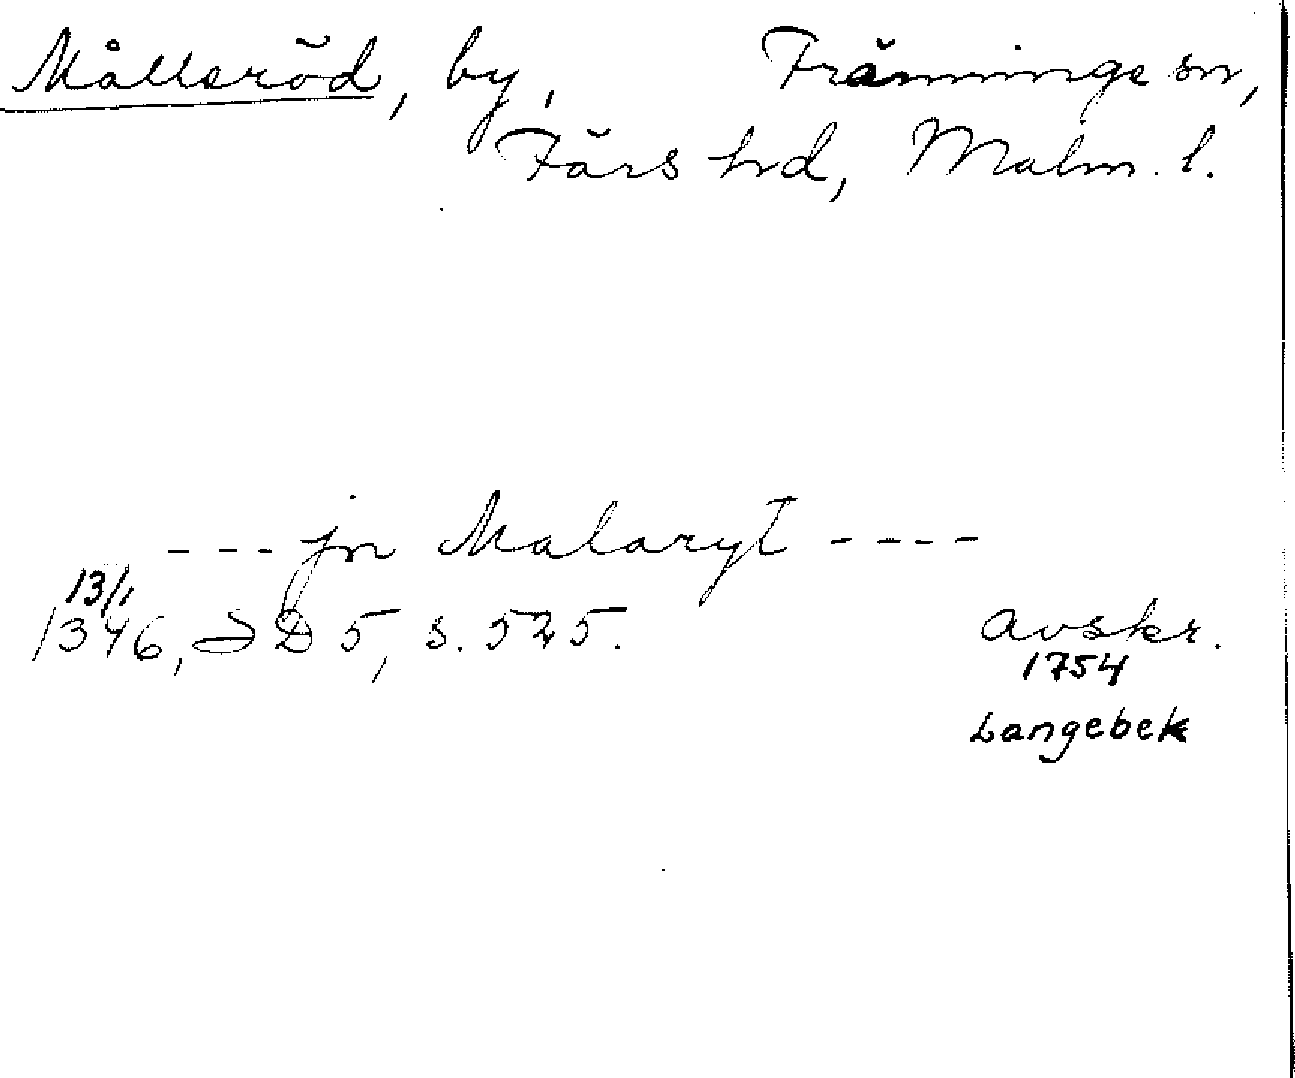 Målleröd, by, Fränninge sn,
Färs hd, Malm. l.
--- jn Malaryt ----
13/1
1346, SD 5, s. 525.
Avskr.
1754
Langebek